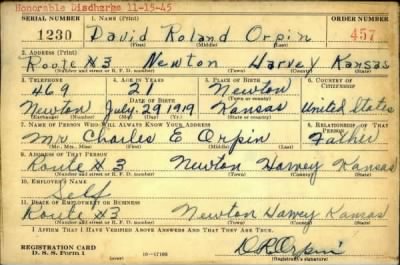 Honorable Discharge 11-15-45
SERIAL NUMBER 1. NAME (Print) ORDER NUMBER
1230 David Roland Orpin 457
(First) (Middle) (Last)
2. ADDRESS (Print)
Route #3 Newton Harvey Kansas
(Number and street or R. F. D. number) (Town) (County) (State)
3. TELEPHONE 4. AGE IN YEARS 5. PLACE OF BIRTH 6. COUNTRY OF CITIZENSHIP
469 21 Newton
DATE OF BIRTH (Town or county)
Newton July. 29 1919 Kansas United States
(Exchange) (Number) (Mo.) (Day) (Yr.) (State or country)
7. NAME OF PERSON WHO WILL ALWAYS KNOW YOUR ADDRESS 8. RELATIONSHIP OF THAT PERSON
Mr Charles E Orpin Father
(Mr., Mrs., Miss) (First) (Middle) (Last)
9. ADDRESS OF THAT PERSON
Route #3 Newton Harvey Kansas
(Number and street or R. F. D. number) (Town) (County) (State)
10. EMPLOYER'S NAME
Self
11. PLACE OF EMPLOYMENT OR BUSINESS
Route #3 Newton Harvey Kansas
(Number and street or R. F. D. number) (Town) (County) (State)
I AFFIRM THAT I HAVE VERIFIED ABOVE ANSWERS AND THAT THEY ARE TRUE.
REGISTRATION CARD
D. S. S. Form 1 16-17105 D R Orpin